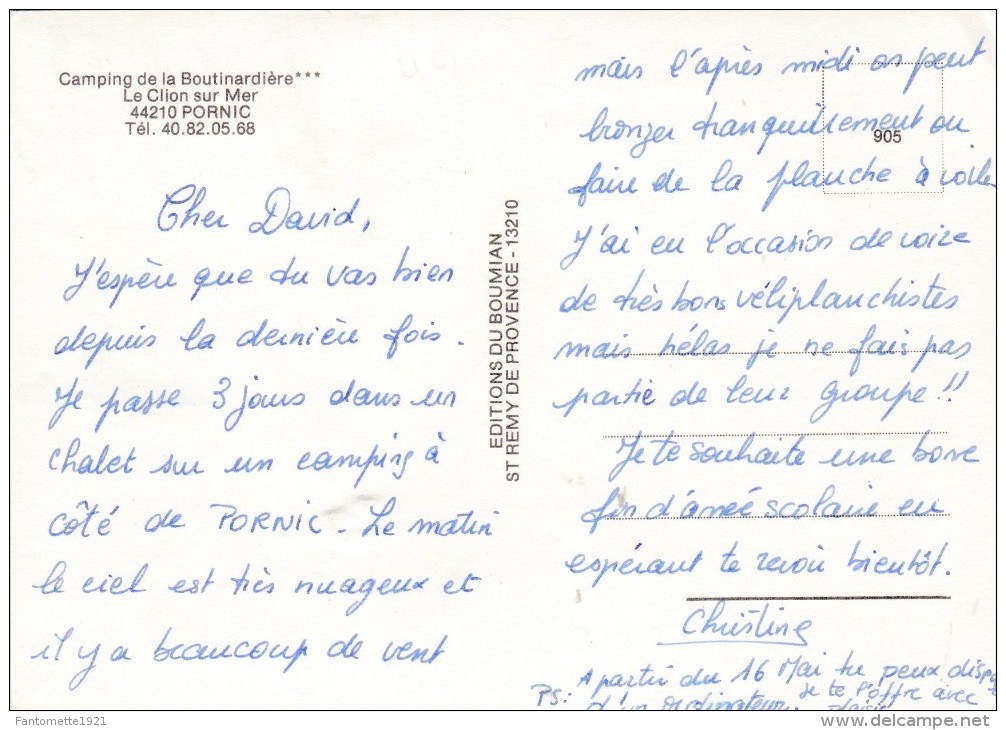 Camping de la Boutinardière***
Le Clion sur Mer
44210 PORNIC
Tél. 40.82.05.68
Cher David,
J'espère que tu vas bien
depuis la dernière fois.
Je passe 3 jours dans un
chalet sur un camping à
côté de PORNIC. Le matin
le ciel est très nuageux et
il y a beaucoup de vent
EDITIONS DU BOUMIAN
ST REMY DE PROVENCE - 13210
905
mais l'après midi on peut
bronzer tranquillement ou
faire de la planche à voile
J'ai eu l'occasion de voire
de très bons véliplanchistes
mais hélas je ne fais pas
partie de leur groupe !!
Je te souhaite une bonne
fin d'année scolaire en
espérant te revoir bientôt.
Christine
PS: A partir du 16 Mai tu peux
d'un ordinateur. Je te l'offre avec
plaisir
Fantomette1921
www.delcampe.net